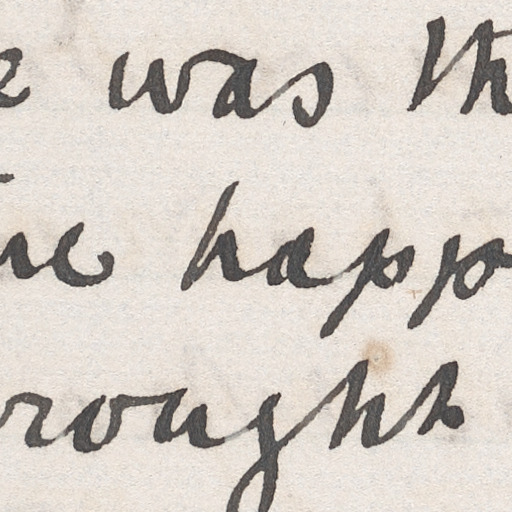 e was th
ne happ
rought